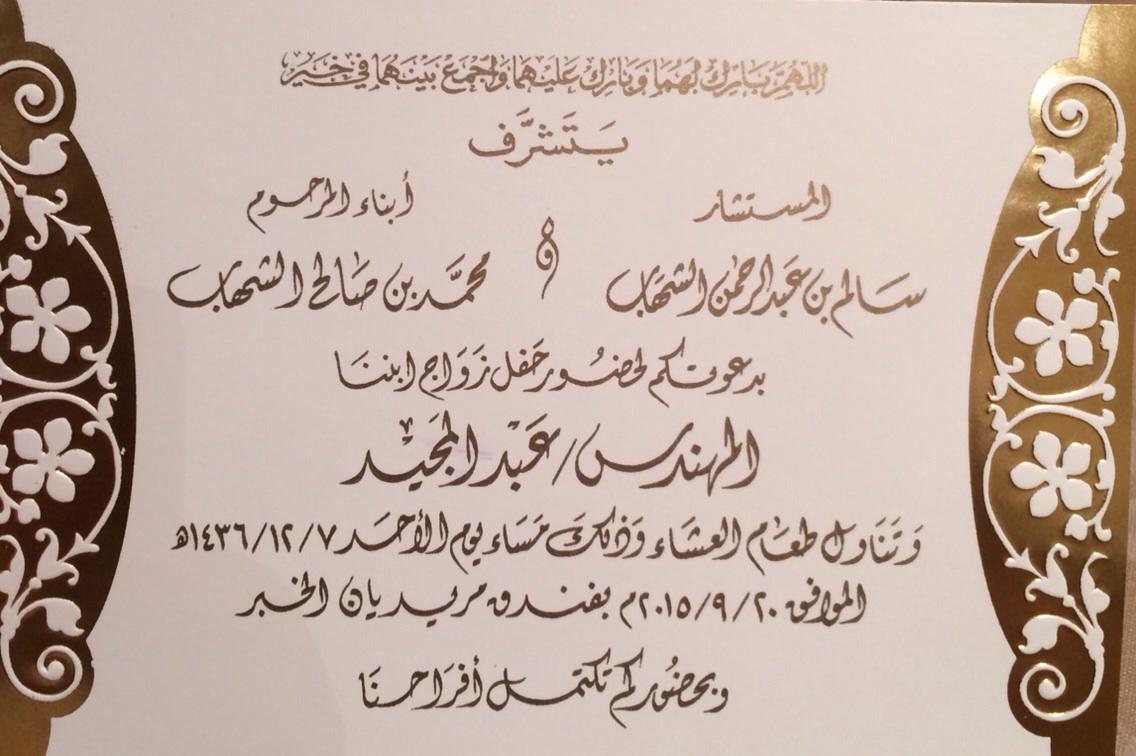 اللهُمَّ بَارِك لَهُمَا وَبَارِك عَلَيْهَما وَاجْمَع بَيْنَهُمَا فِي خَيْر
يَتَشَرَّف
المستشار
سَالم بن عَبدالرحمٰن الشهَاب
و
أبناء المرحوم
محمَّد بن صَالح الشهَاب
بدعوتكم لحضُور حَفل زَوَاج ابننَا
المهندس/عَبْد المَجَيْد
وَتَنَاول طعَام العشَاء وَذلكَ مَسَاء يوم الأحَد ١٤٣٦/١٢/٧هـ
الموافق ٢٠١٥/٩/٢٠م بفندق مريديان الخبر
وبحضُوركم تكتمل أفرَاحنَا